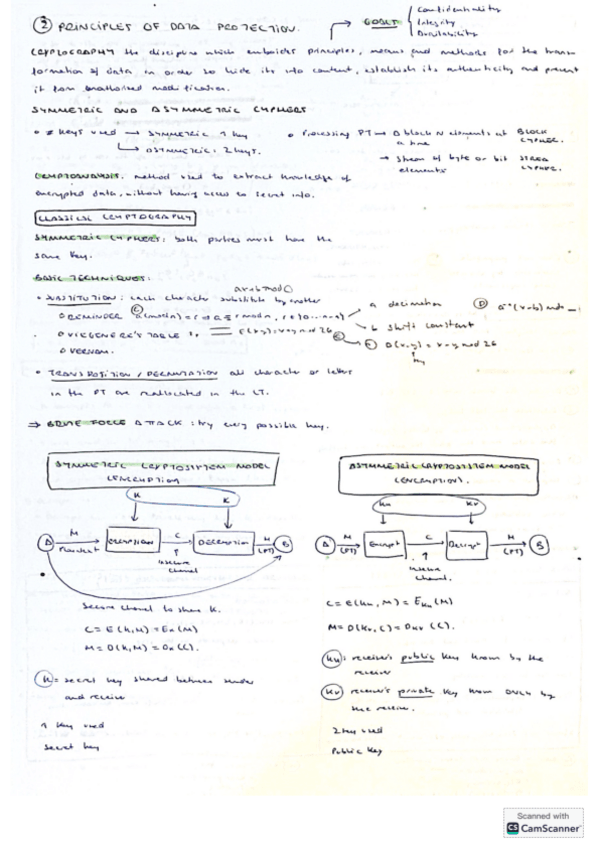 ② PRINCIPLES OF DATA PROTECTION.
GOALS
Confidentiality
Integrity
Availability
CRYPTOGRAPHY the discipline which embodies principles, means and methods for the trans
formation of data, in order so hide its info content, establish its authenticity and prevent
it from unauthorized modification.
SYMMETRIC AND ASYMMETRIC CYPHERS
• # keys used → SYMMETRIC 1 key
→ ASYMMETRIC: 2 keys.
• Processing PT → A block N elements at a time
BLOCK CYPHER.
→ stream of byte or bit elements
CRYPTOANALYSIS: method used to extract knowledge of
encrypted data, without having access to secret info.
CLASSICAL CRYPTOGRAPHY
SYMMETRIC CYPHERS: both parties must have the
same key.
BASIC TECHNIQUES:
ax+b mod()
• SUBSTITUTION: each character substitute by another
a decimation
b shift constant
VIGENERE'S TABLE
E(x,y)=x+y mod 26
D(x,y) = x-y mod 26
key
VERNAM.
• TRANSPOSITION / PERMUTATION all character or letters
in the PT are reallocated in the CT.
⇒ BRUTE FORCE ATTACK: try every possible key.
SYMMETRIC CRYPTOSYSTEM MODEL
(ENCRYPTION)
K K
A M Plaintext ENCRYPTION C DECRYPTION M (PT) B
insecure
channel
Secure channel to share K.
C = E(K,M) = Ek(M)
M = D(K,M) = Dk(C).
K = secret key shared between sender
and receiver
1 key used
secret key
ASYMMETRIC CRYPTOSYSTEM MODEL
(ENCRYPTION).
Ku Kv
A M (PT) Encrypt C Decrypt M (PT) B
insecure
channel.
C = E(Ku, M) = EKu(M)
M = D(Kv, C) = DKv(C).
Ku: receiver's public key known by the
receiver
Kv receiver's private key known only by
the receiver.
2 key used
Public Key
Scanned with
CS CamScanner